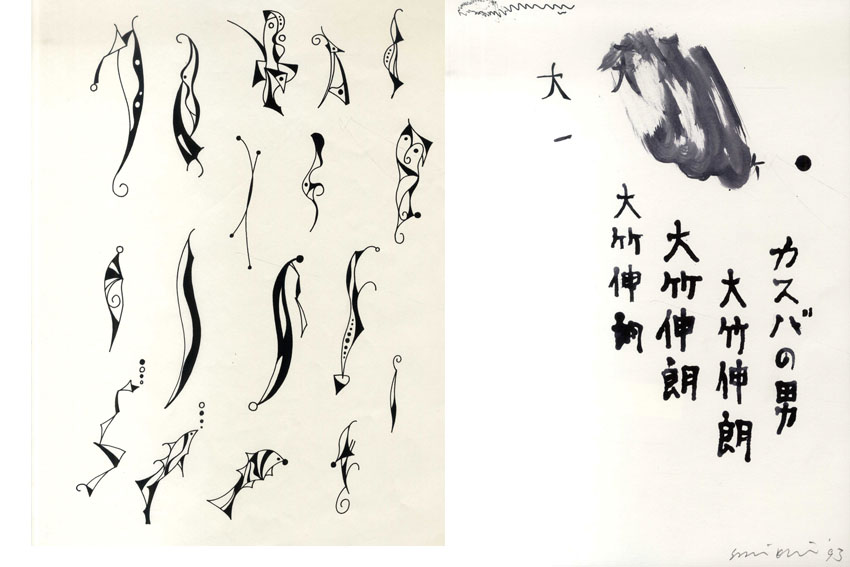 カスバの男
大竹伸朗
大竹伸朗
大竹伸朗
大
大
'93